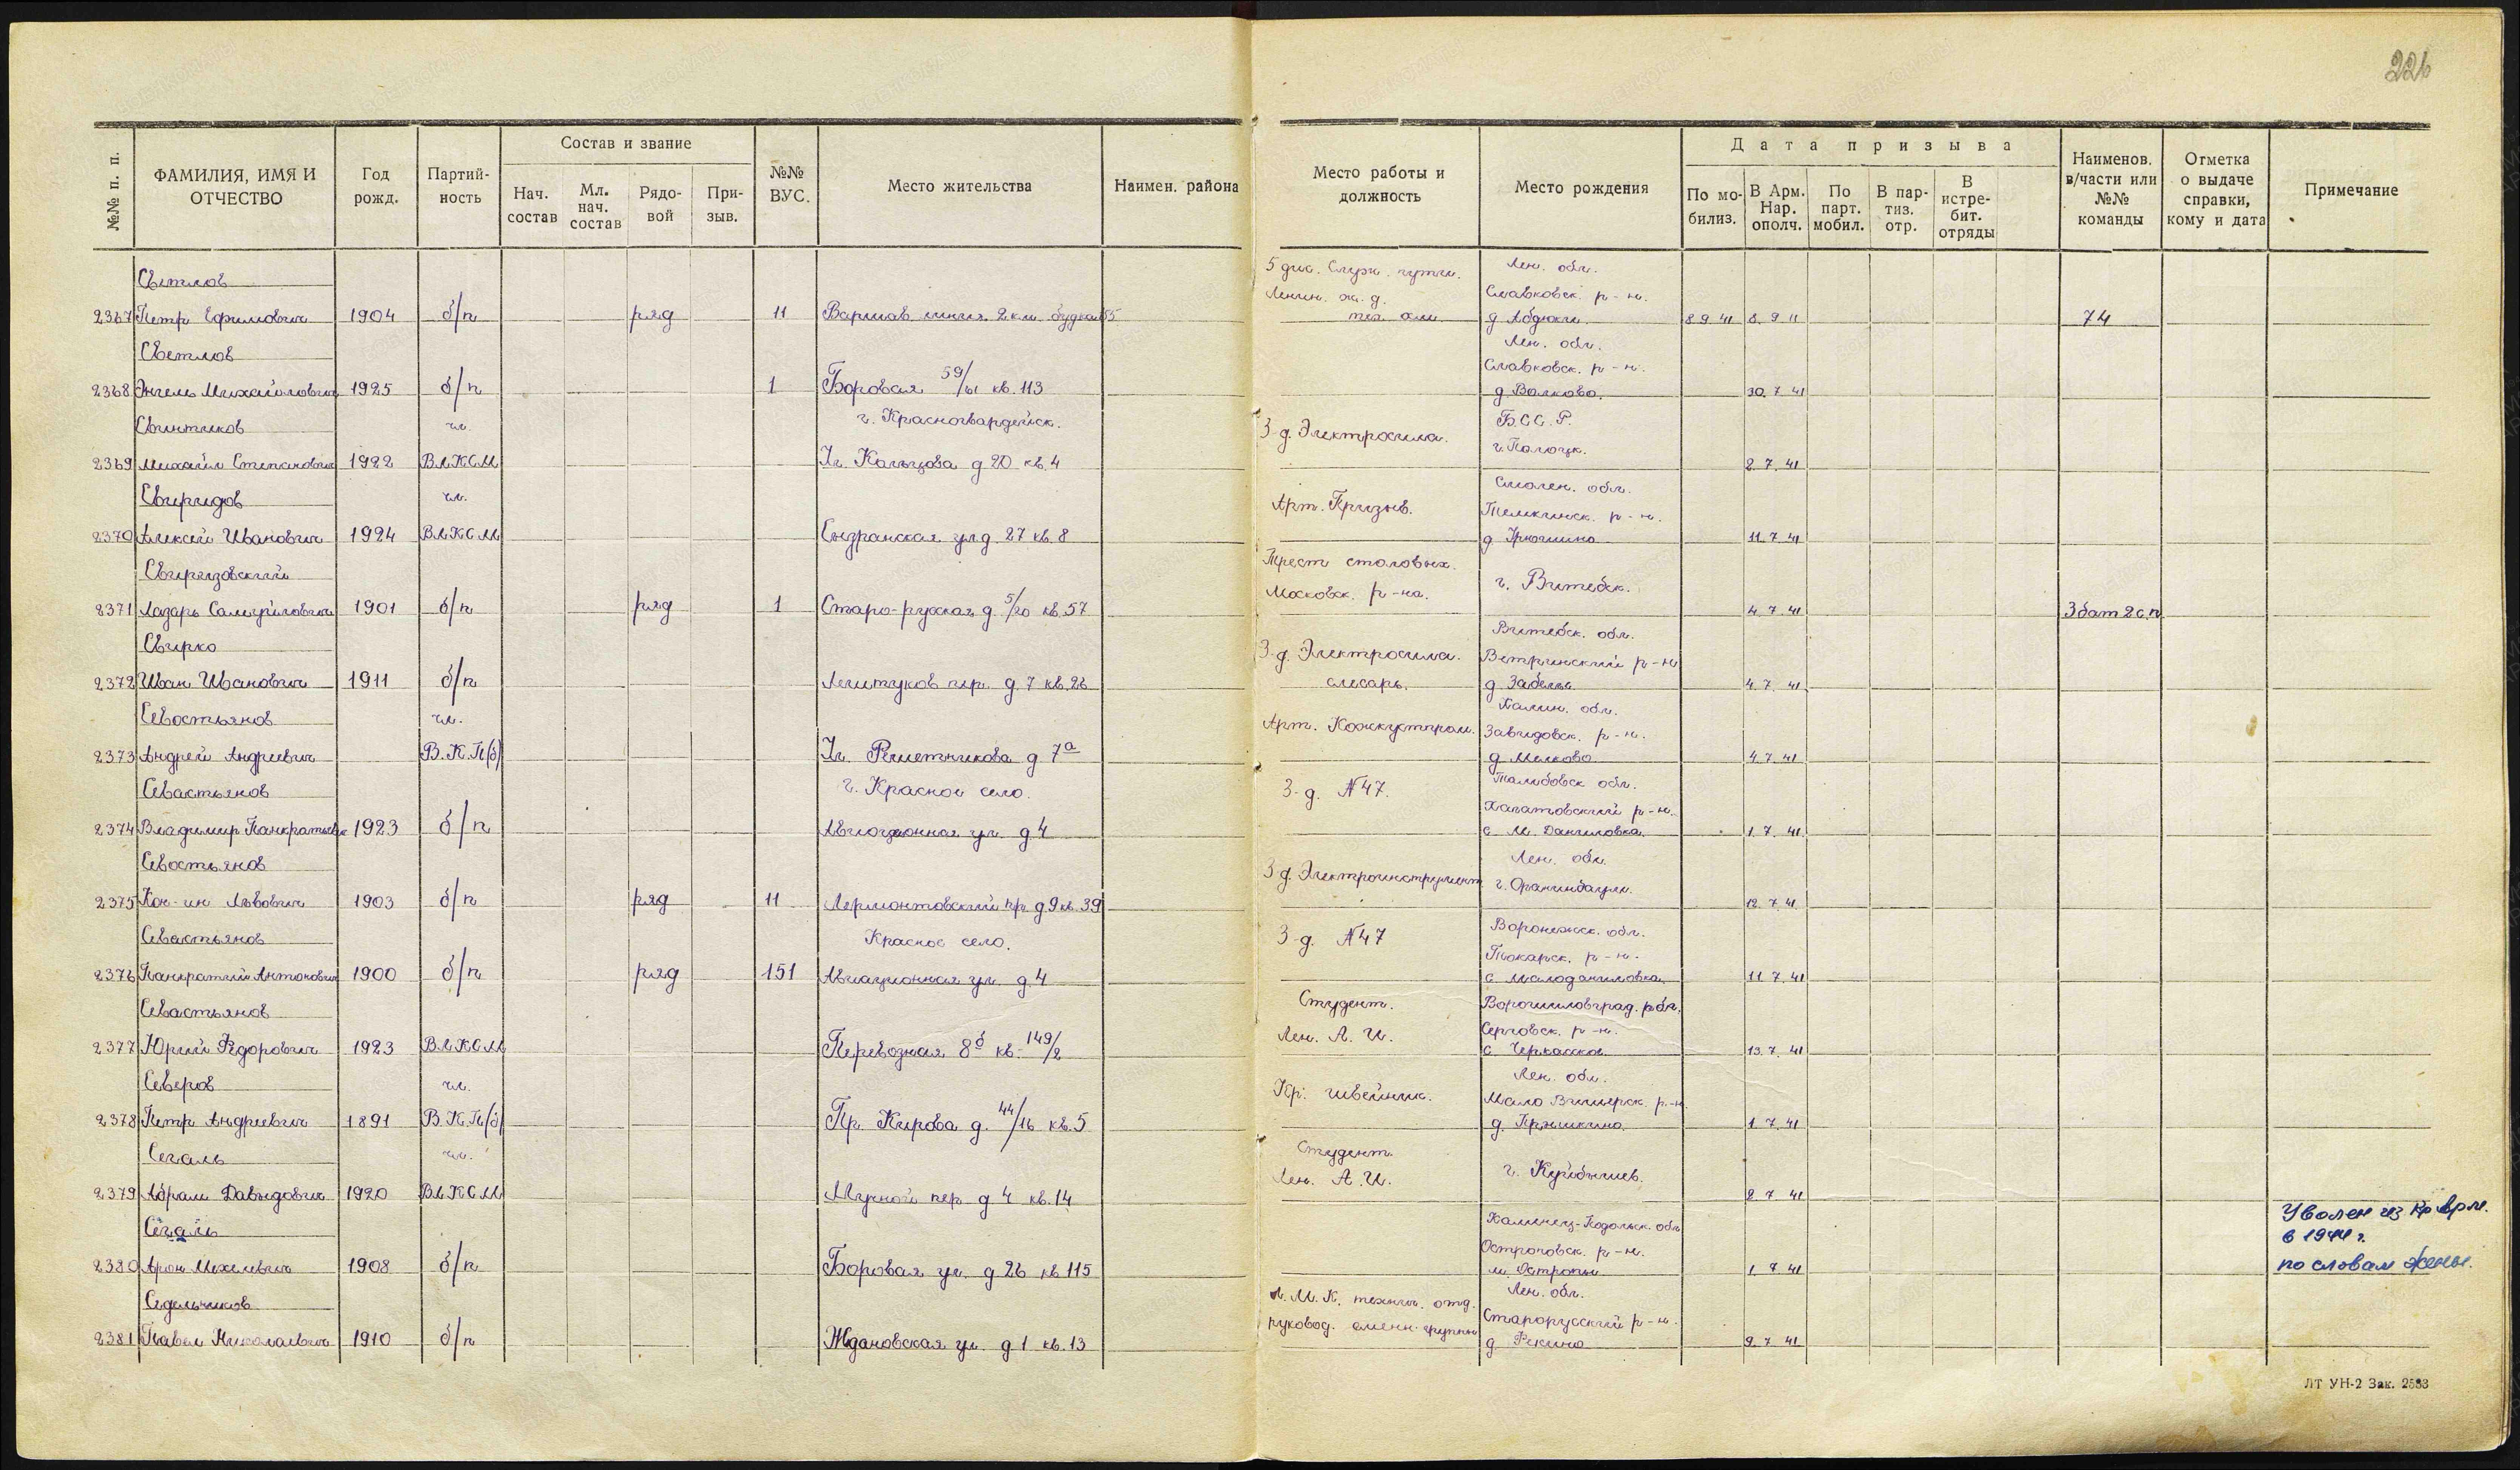 226
№№ п. п.
ФАМИЛИЯ, ИМЯ И ОТЧЕСТВО
Год рожд.
Партий-ность
Состав и звание
Нач. состав
Мл. нач. состав
Рядо-вой
При-зыв.
№№ ВУС.
Место жительства
Наимен. района
Место работы и должность
Место рождения
Дата призыва
По мо-билиз.
В Арм. Нар. ополч.
По парт. мобил.
В пар-тиз. отр.
В истре-бит. отряды
Наименов. в/части или №№ команды
Отметка о выдаче справки, кому и дата
Примечание
Светлов
2367 Петр Ефимович 1904 б/п ряд 11 Варшав. линия 2 км. будка 55
Ленин. ж. д.
Лен. обл.
Славковск. р-н.
8 9 41 8. 9 11 74
Светлов
2368 Энгель Михайлович 1925 б/п 1 Боровая 59/61 кв. 113
Лен. обл.
Славковск. р-н.
д Волково. 30. 7. 41
Свинтиков чл.
2369 Михаил Степанович 1922 ВЛКСМ
г. Красногвардейск.
Ул. Кольцова д 20 кв. 4
З-д. Электросила.
Б.С.С.Р.
г. Полоцк. 2. 7. 41
Свиридов чл.
2370 Алексей Иванович 1924 ВЛКСМ Сызранская ул д. 27 кв. 8
Арт. Призыв.
Смолен. обл.
Темкинск. р-н.
11. 7. 41
Свирязовский
2371 Лазарь Самуилович 1901 б/п ряд 1 Старо-русская д. 5/20 кв. 57
Трест столовых.
Московск. р-на.
г. Витебск. 4. 7. 41 3 бат 2 с.п
Свирко
2372 Иван Иванович 1911 б/п Лештуков пер. д. 7 кв. 26
З-д. Электросила.
слесарь.
Витебск. обл.
Ветринский р-н
д. Забелье 4. 7. 41
Севостьянов чл.
2373 Андрей Андреевич В.К.П(б) Ул. Решетникова д 7а
Арт. Кожкустпром.
Калин. обл.
Завидовск. р-н.
д Мелково 4. 7. 41
Севастьянов
2374 Владимир Панкратьевич 1923 б/п
г. Красное село.
Авиационная ул. д. 4
З-д. №47.
с М. Даниловка. 1. 7. 41
Севостьянов
2375 Кон-ин Львович 1903 б/п ряд 11 Лермонтовский пр. д. 9 кв. 39
З д. Электроинструмент
Лен. обл.
г. Ораниенбаум. 12. 7. 41
Севастьянов
2376 Панкратий Антонович 1900 б/п ряд 151
Красное село.
Авиационная ул. д 4
З-д. №47
Воронежск. обл.
Токарск. р-н.
с Малоданиловка. 11. 7. 41
Севастьянов
2377 Юрий Федорович 1923 ВЛКСМ Перевозная 8б кв. 149/2
Студент.
Лен. А. И.
Ворошиловград. обл.
Серговск. р-н.
с Черкасское 13. 7. 41
Северов чл.
2378 Петр Андреевич 1891 В.К.П(б) Пр Кирова д. 44/16 кв. 5
Кр: швейник.
Лен. обл.
Мало Вишерск. р-н
1. 7. 41
Сегаль чл.
2379 Абрам Давыдович 1920 ВЛКСМ Мучной пер д 4 кв. 14
Студент.
Лен. А. И.
г. Куйбышев. 2. 7. 41
Сегаль
2380 Арон Мехелевич 1908 б/п Боровая ул. д 26 кв 115
Каменец-Подольск. обл
м. Острополь 1. 7 41
Уволен из Кр Арм.
в 1944 г.
по словам жены.
Седельников
2381 Павел Николаевич 1910 б/п Ждановская ул. д 1 кв. 13
Л. М. К. технич. отд.
руковод. сменн. группы
Лен. обл.
Старорусский р-н.
д Рекино 9. 7. 41
ЛТ УН-2 Зак. 2583